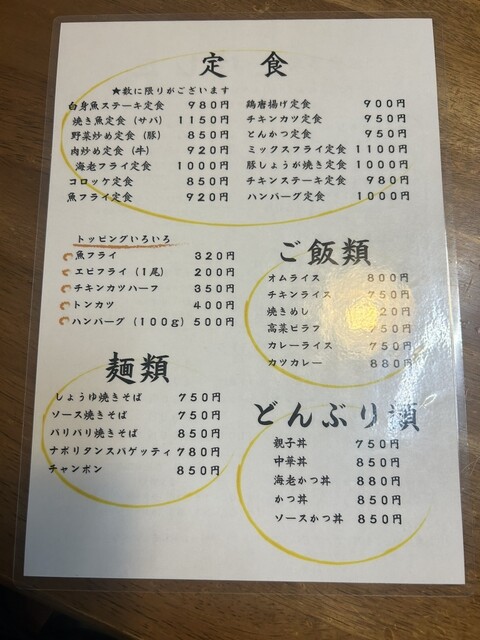 定食
★数に限りがございます
白身魚ステーキ定食 980円
焼き魚定食（サバ） 1150円
野菜炒め定食（豚） 850円
肉炒め定食（牛） 920円
海老フライ定食 1000円
コロッケ定食 850円
魚フライ定食 920円
鶏唐揚げ定食 900円
チキンカツ定食 950円
とんかつ定食 950円
ミックスフライ定食 1100円
豚しょうが焼き定食 1000円
チキンステーキ定食 980円
ハンバーグ定食 1000円
トッピングいろいろ
魚フライ 320円
エビフライ（1尾） 200円
チキンカツハーフ 350円
トンカツ 400円
ハンバーグ（100g） 500円
ご飯類
オムライス 800円
チキンライス 750円
焼きめし 20円
高菜ピラフ 750円
カレーライス 750円
カツカレー 880円
麺類
しょうゆ焼きそば 750円
ソース焼きそば 750円
バリバリ焼きそば 850円
ナポリタンスパゲッティ 780円
チャンポン 850円
どんぶり類
親子丼 750円
中華丼 850円
海老かつ丼 880円
かつ丼 850円
ソースかつ丼 850円